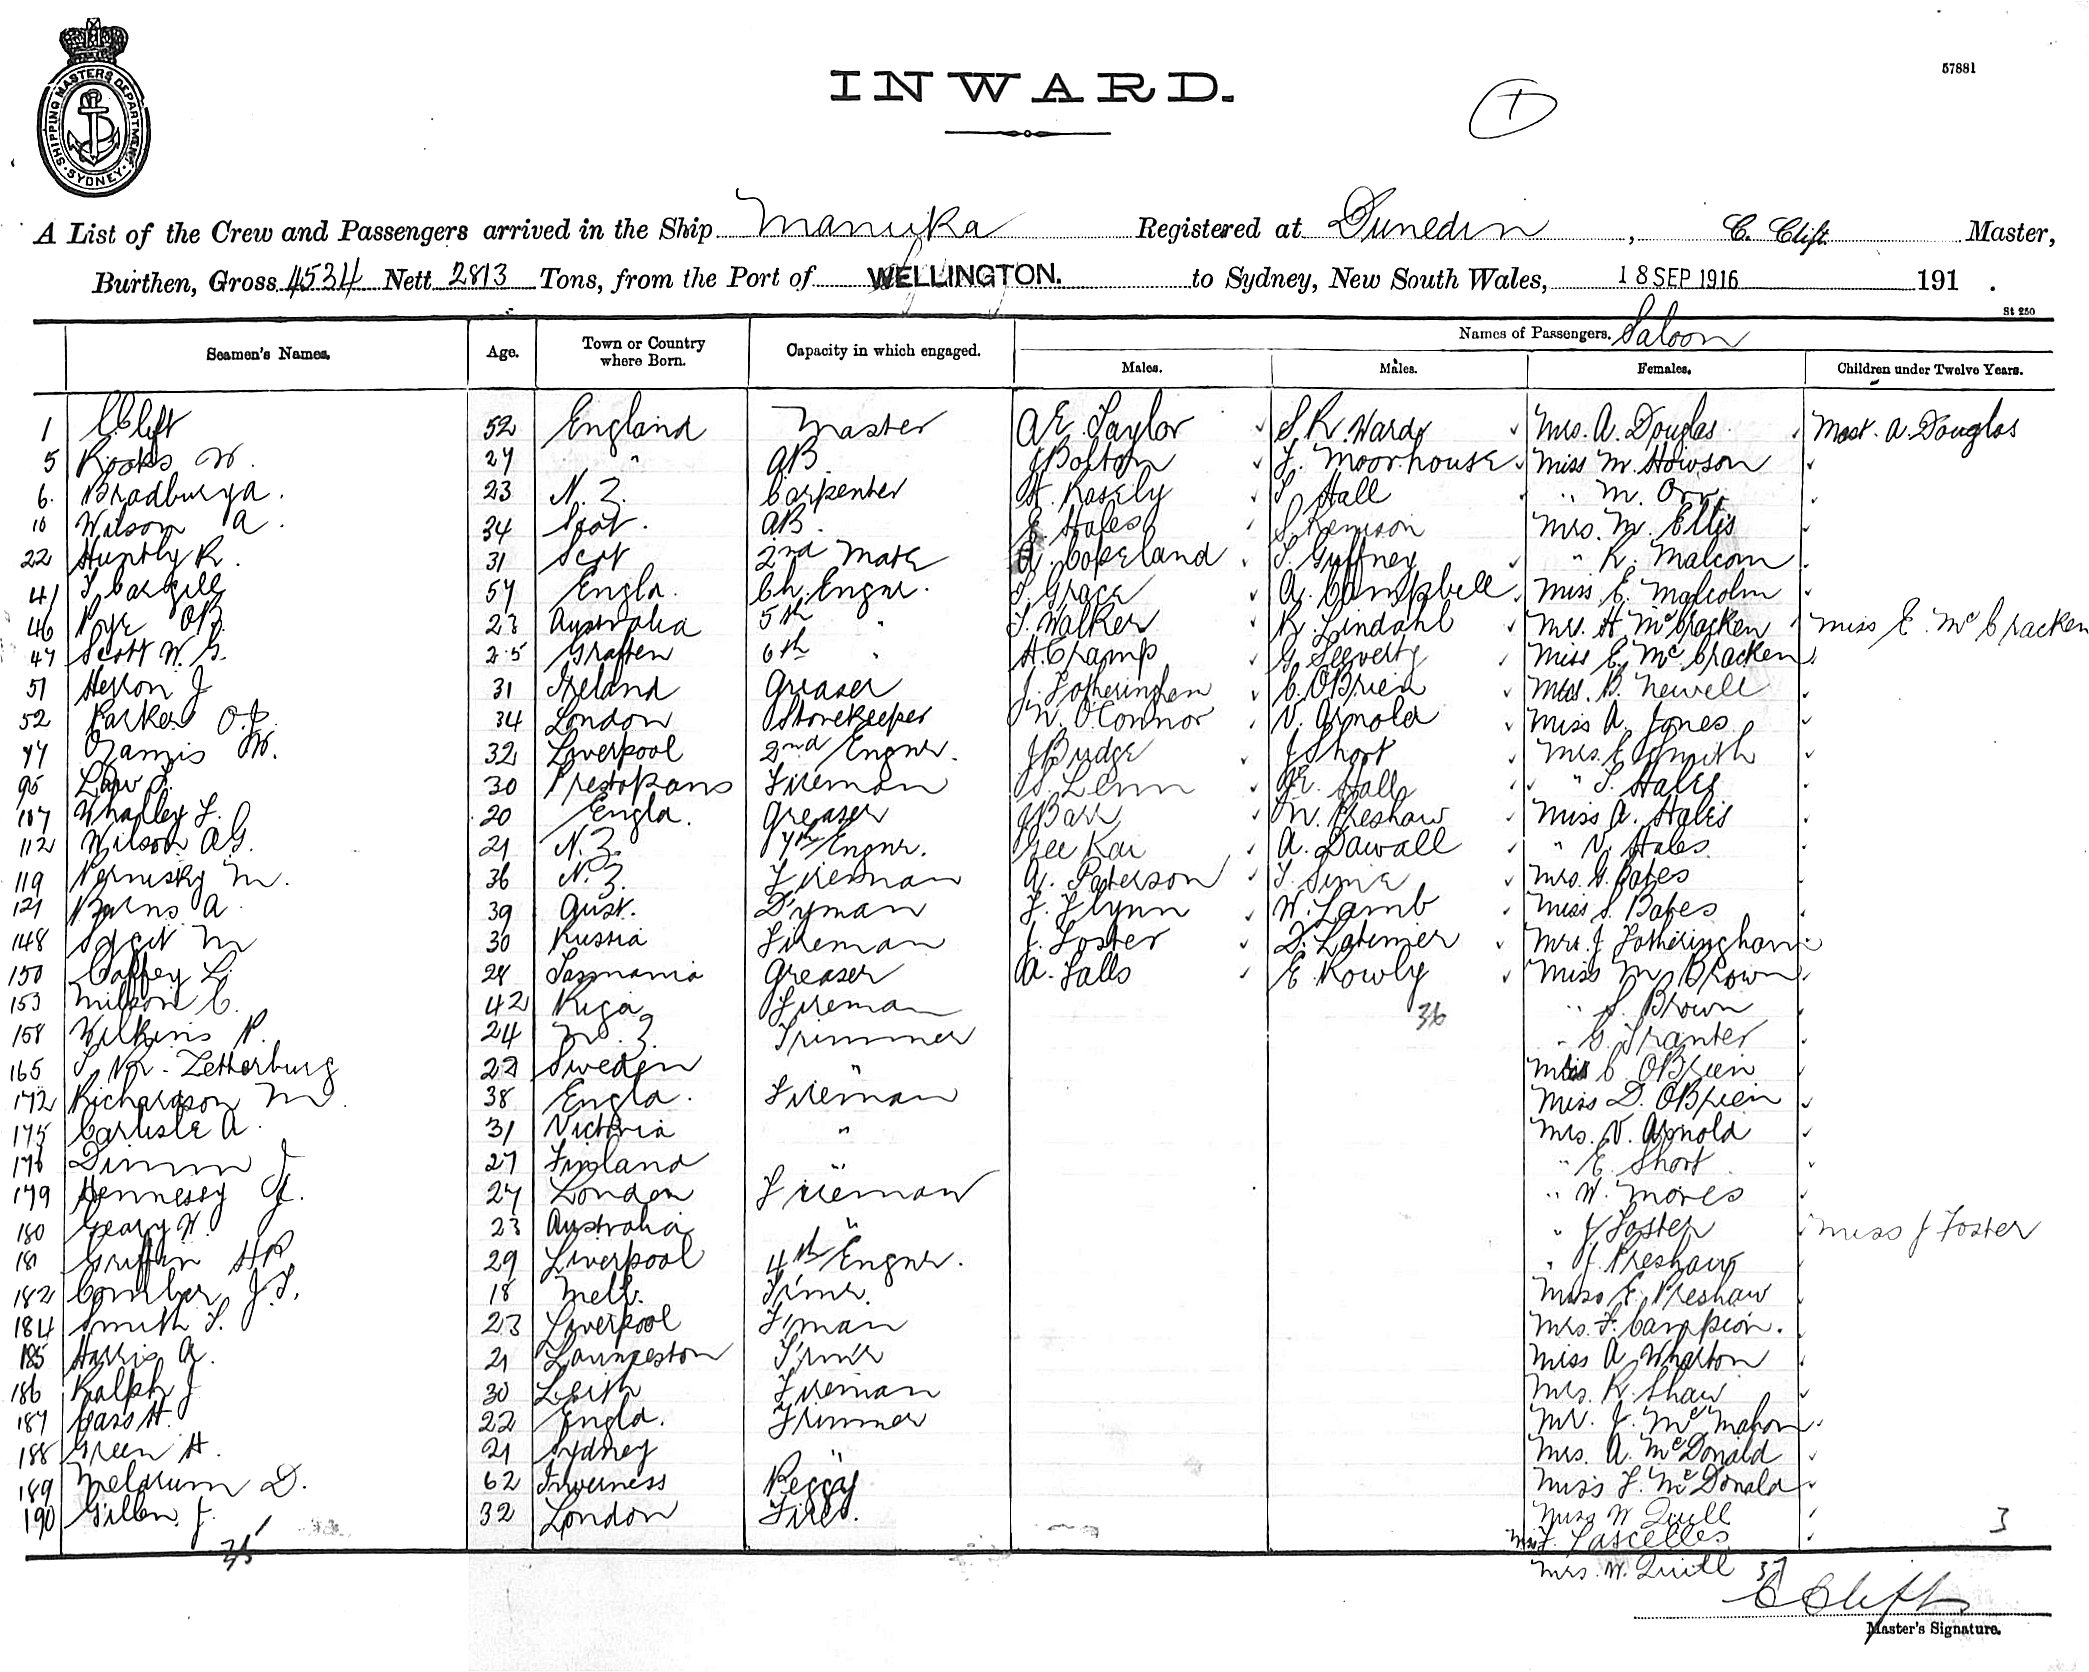 SHIPPING MASTERS DEPARTMENT · SYDNEY ·
INWARD.
1
57881
A List of the Crew and Passengers arrived in the Ship Manuka Registered at Dunedin, C. Clift Master,
Burthen, Gross 4534 Nett 2813 Tons, from the Port of WELLINGTON. to Sydney, New South Wales, 18 SEP 1916 191 .
St 250
Seamen's Names. Age. Town or Country where Born. Capacity in which engaged. Names of Passengers. Saloon
Males. Males. Females. Children under Twelve Years.
1 C Clift 52 England Master A E. Taylor S. R. Ward Mrs. A. Douglas Mast. A. Douglas
5 Rooks W. 27 " AB J Bolton J. Moorhouse Miss M. Howson
6. Bradbury A. 23 N. Z. Carpenter H. Kasely Hall " M. Orr
10 Wilson A. 34 Scot. AB. E Hales S Kemison Mrs. M. Ellis
22 Huntly R. 31 Scot 2nd Mate A. Copeland T. Guffney " R. Malcom
41 T Cargill 57 Engla. Ch. Engnr. T. Grace A. Campbell Miss E. Malcolm
46 Pye OB. 23 Australia 5th " T. Walker R. Lindahl Mrs. H McCracken Miss E. McCracken
47 Scott W. G. 25 Graften 6th " H. Cramp G Seeverty Miss E. McCracken
51 Herron J 31 Ireland Greaser J. Fotheringham C. OBrien Mrs. B. Newell
52 Parker O.J. 34 London Storekeeper N. O'Connor V. Arnold Miss A. Jones
77 W. 32 Liverpool 2nd Engnr. J Budge J Short Mrs. E Smith
95 Law J. 30 Prestopans Fireman S. Lenn E. Hall " S. Hales
107 Whalley F. 20 Engla. Greaser J Barr N. Preshaw Miss A. Hales
112 Wilson AG. 21 N. Z. 7th Engnr. Gee Kai A. Dawall " V. Hales
119 Pernisky M. 36 N. Z. Fireman A. Paterson T. Sime Mrs. G. Bates
121 Burns A. 39 Aust. D'yman F. Flynn W. Lamb Miss S. Bates
148 M 30 Russia Fireman J. Foster D. Latimer Mrs. J Fotheringham
150 Caffey L. 28 Tasmania Greaser A. Falls E. Rowly Miss M. Brown
153 Milson C. 42 Riga Fireman 36 " S. Brown
158 Wilkins P. 24 N. Z. Trimmer " G. Tranter
165 Zetterburg 22 Sweden " Miss C OBrien
172 Richardson M. 38 Engla. Fireman Miss D. OBrien
175 Carlisle A. 31 Victoria " Mrs. V. Arnold
176 Dimm J 27 Finland " " E. Short
179 Hennessy J. 27 London Fireman " W. Mores
180 Geary W. 23 Australia " " J Foster Miss J Foster
181 Griffin HR 29 Liverpool 4th Engnr. " J. Preshaw
182 Comber J.T. 18 Melb. Trimr. Miss E. Preshaw
184 Smith T. 23 Liverpool F'man Mrs. F. Campion.
185 Harris A. 21 Launceston Trimr Miss A Wharton
186 Ralph J 30 Leith Fireman Mrs. R. Shaw
187 Cass H. 22 Engla. Trimmer Mr. J. McMahon
188 Green H. 21 Sydney " Mrs. A. McDonald
189 Meldrum D. 62 Inverness Peggy Miss F. McDonald
190 Gillen J. 32 London Fires. Miss W Quill 3
35 Miss F. Lascelles
Mrs. W. Quill 37
C Clift
Master's Signature.